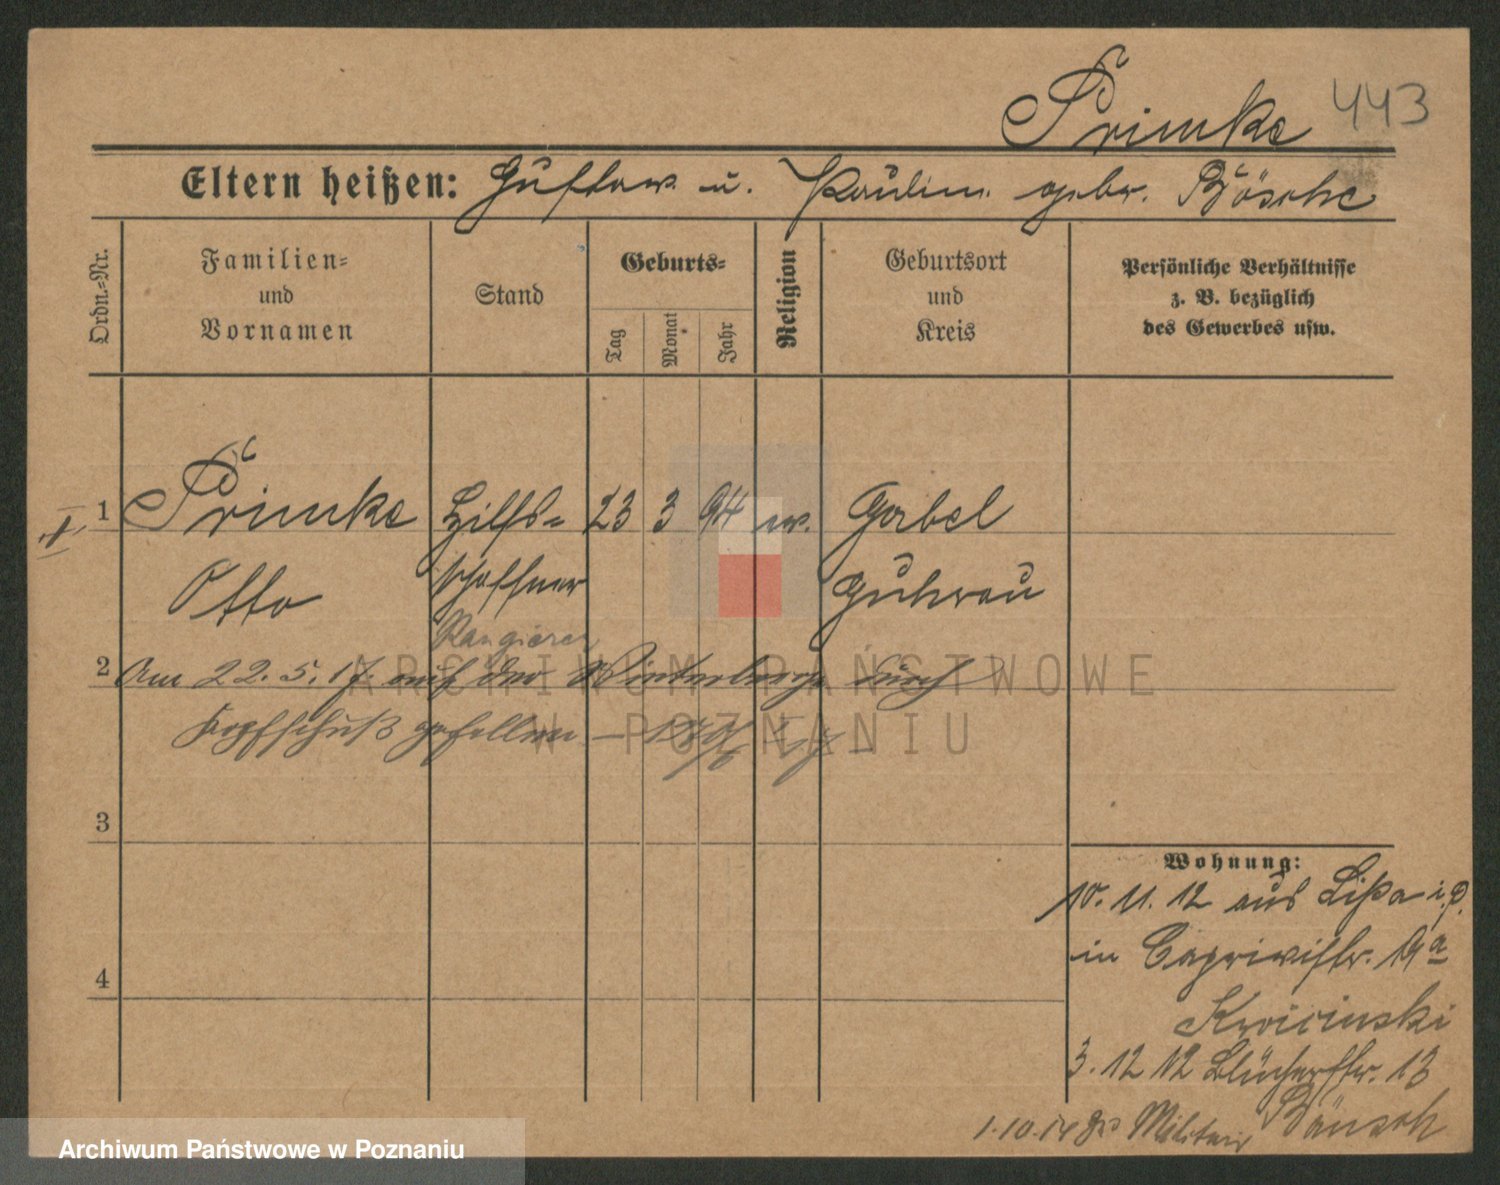 Primke 443
Eltern heißen: Gustav u. Paulin. gebr. Bösche
Ordn.-Nr.
Familien-
und
Vornamen
Stand
Geburts-
Tag
Monat
Jahr
Religion
Geburtsort
und
Kreis
Persönliche Verhältnisse
z. B. bezüglich
des Gewerbes usw.
1 Primke Hilfs- 23 3 94 ev. Gabel
Otto schaffner Guhrau
Rangierer
2 Am 22. 5. 17. auf der Winterberge durch
Kopfschuß gefallen
3
4
Wohnung:
10. 11. 12 aus Lissa i. P.
in Caprivistr. 19a
Kwicinski
3. 12 12 Blücherstr. 13
Bänsch
1. 10. 14 zu Militair
ARCHIWUM PAŃSTWOWE
W POZNANIU
Archiwum Państwowe w Poznaniu